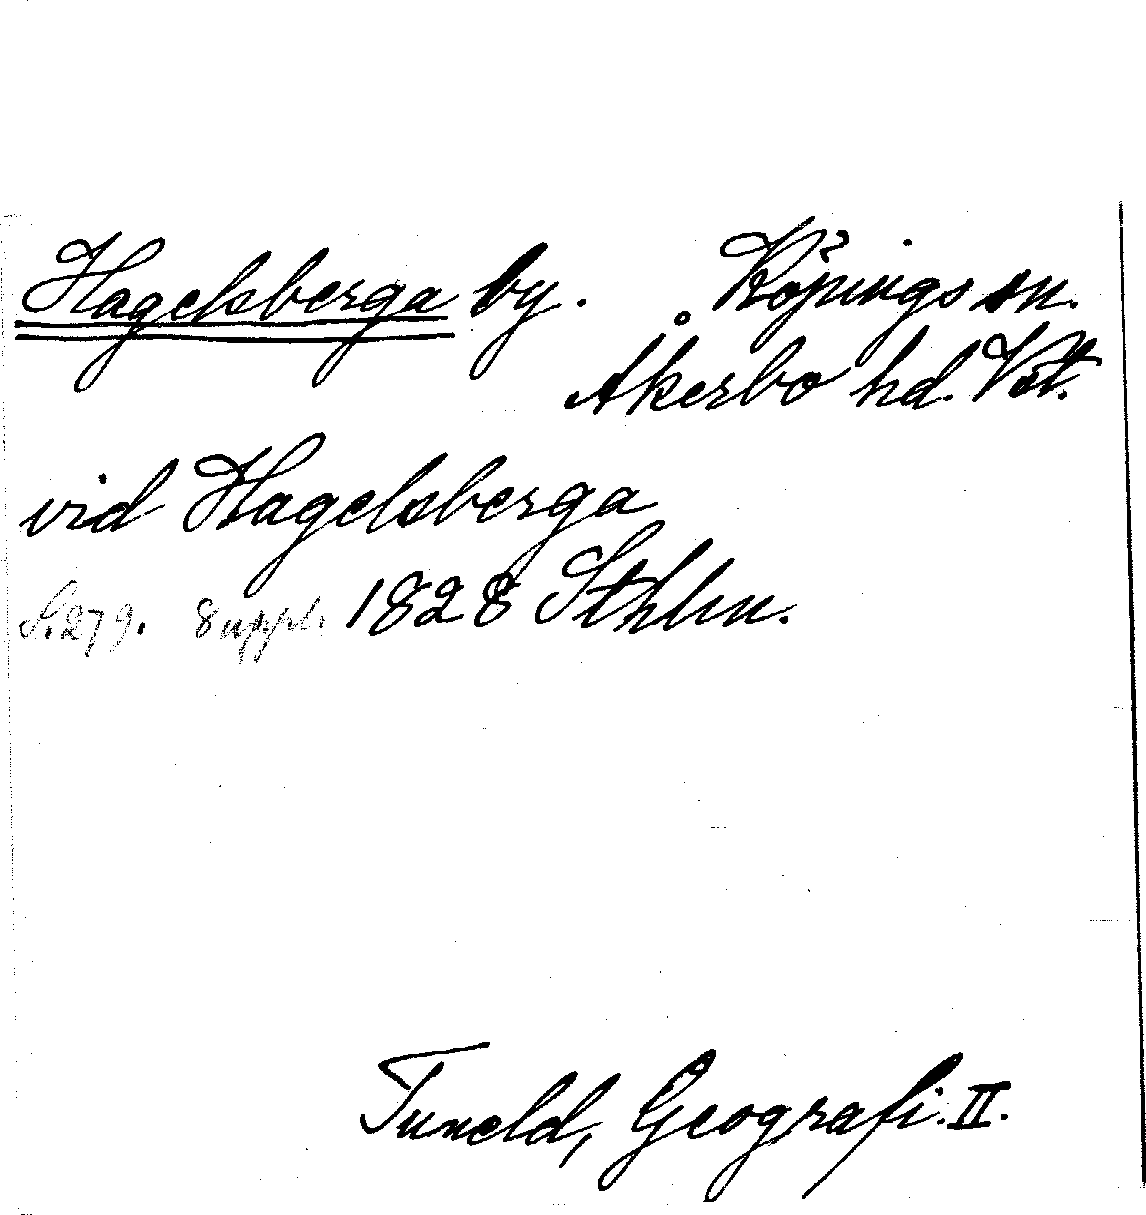 Hagelsberga by. Köpings sn.
Åkerbo hd. Vstl.
vid Hagelsberga
S. 279. 8 uppl. 1828 Sthlm.
Tuneld, Geografi. II.